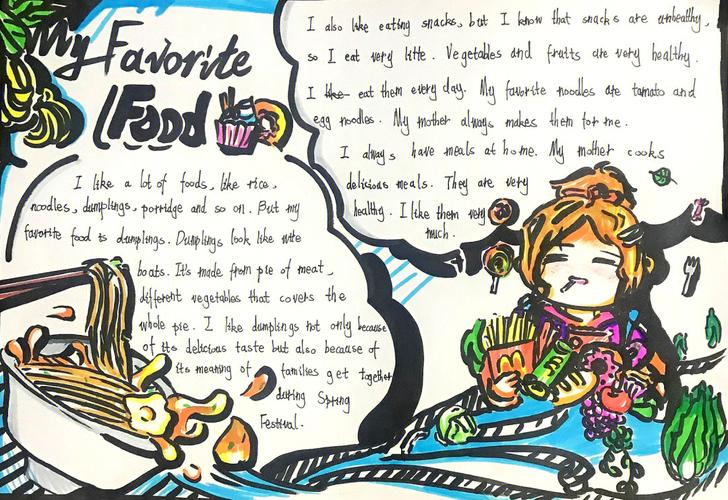 My Favorite
Food
I like a lot of foods, like rice,
noodles, dumplings, porridge and so on. But my
favorite food is dumplings. Dumplings look like wite
boats. It's made from pie of meat,
different vegetables that covers the
whole pie. I like dumplings not only because
of its delicious taste but also because of
its meaning of families get together
during Spring
Festival.
I also like eating snacks, but I know that snacks are unbealthy,
so I eat very litte. Vegetables and fruits are very healthy.
I like eat them every day. My favorite noodles are tamato and
egg noodles. My mother always makes them for me.
I always have meals at home. My mother cooks
delicious meals. They are very
healthy. I like them very
much.